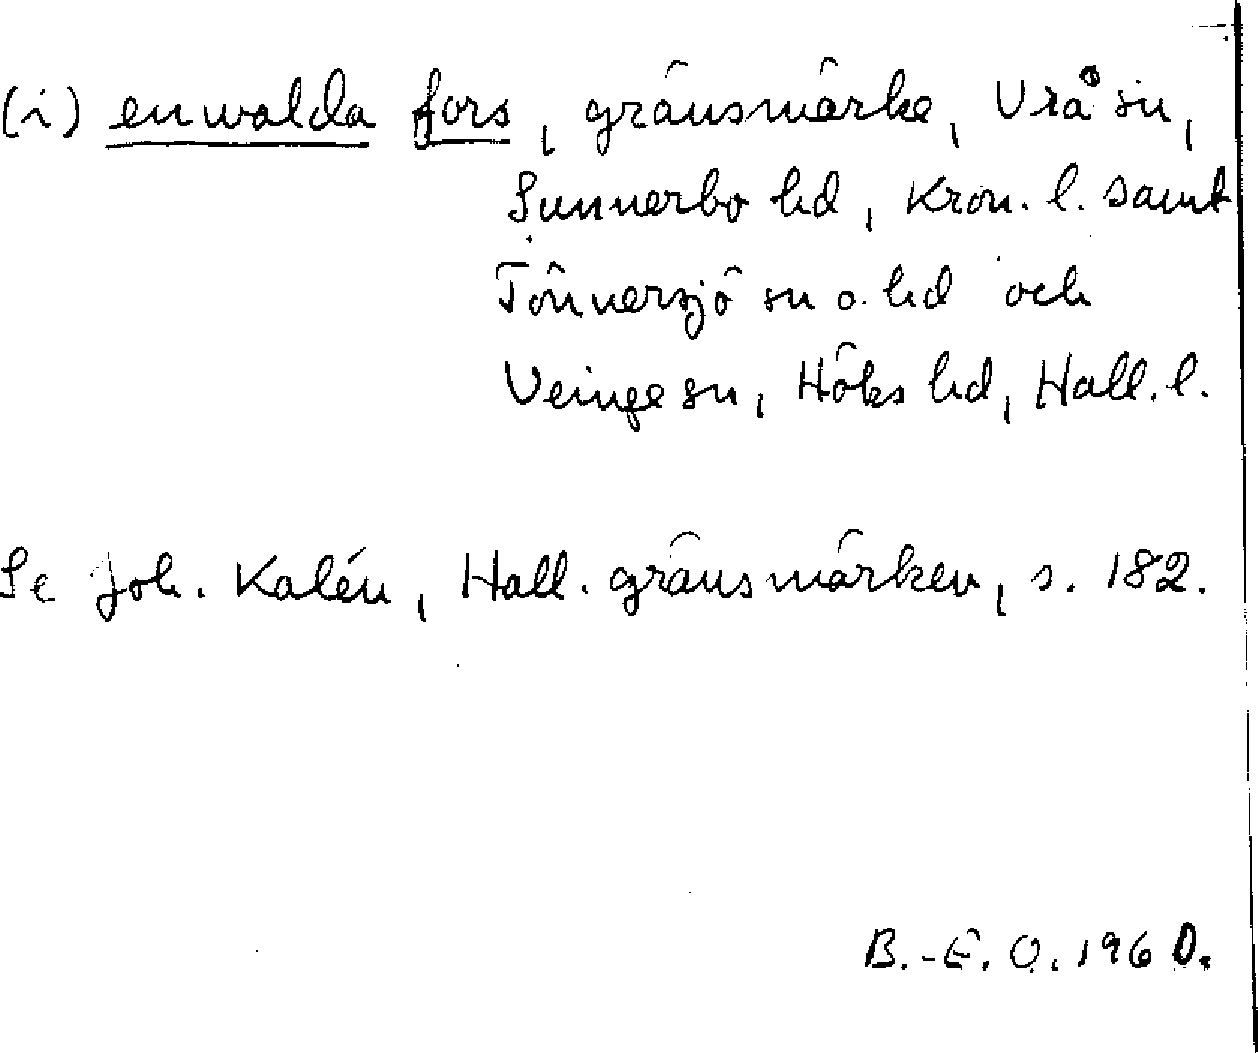 (i) enwalda fors, gränsmärke, Vrå sn,
Sunnerbo hd, Kron. l. samt
Tönnersjö sn o. hd och
Veinge sn, Höks hd, Hall. l.
Se Joh. Kalén, Hall. gränsmärken, s. 182.
B.-E. O. 1960.